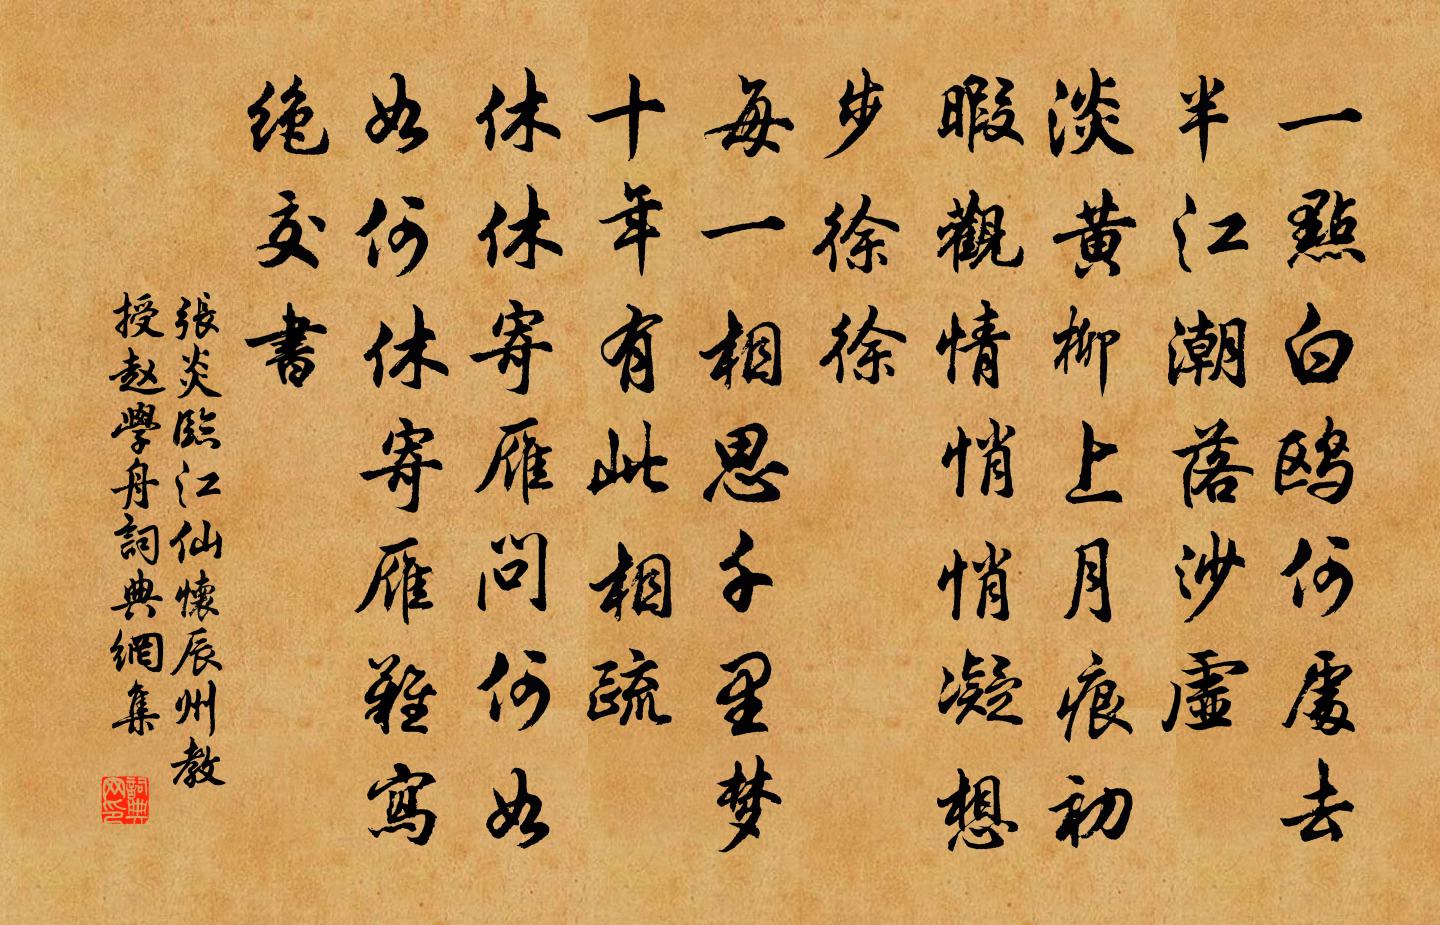 一點白鸥何處去
半江潮落沙虛
淡黄柳上月痕初
暇觀情悄悄凝想
步徐徐
每一相思千里梦
十年有此相疏
休休寄雁问何如
如何休寄雁難寫
绝交書
張炎臨江仙懷辰州教
授赵學舟詞典網集
詞典网印